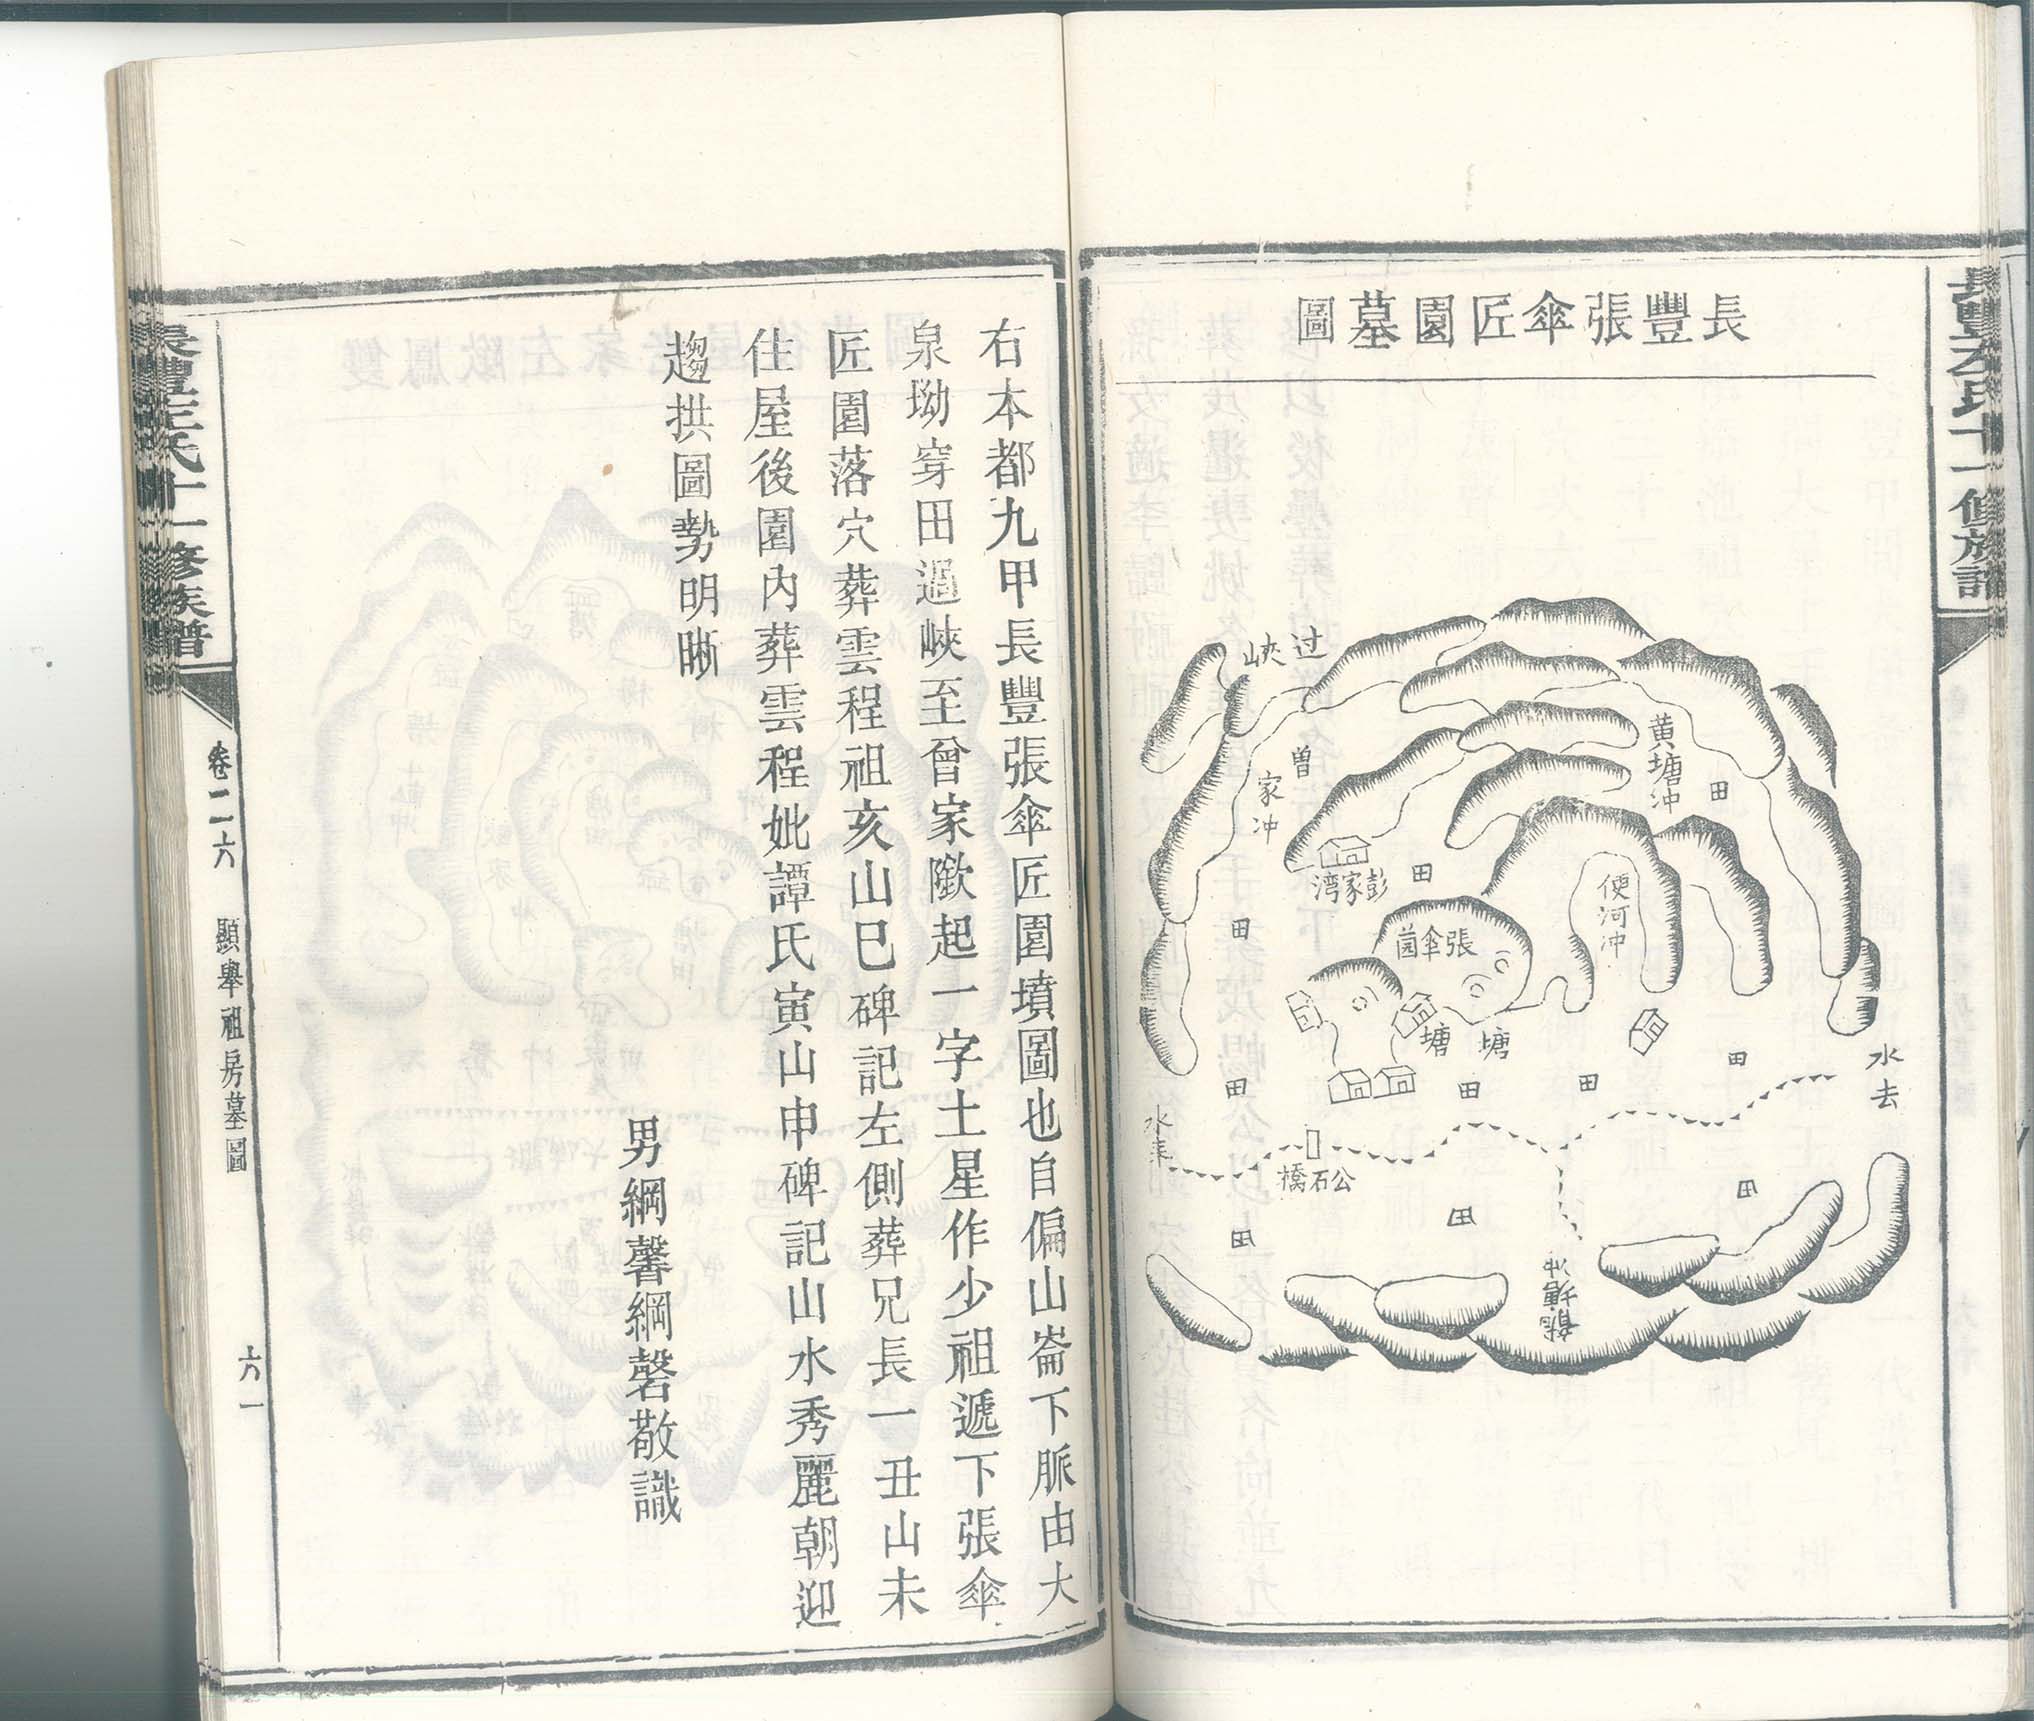 長豐左氏十一修族譜
長豐張傘匠園墓圖
过峽
曾家冲
黄塘冲
田
彭家湾
田
便河冲
田
張傘園
塘
塘
田
田
田
田
水去
水来
公石橋
田
田
田
冲
右本都九甲長豐張傘匠園墳圖也自偏山崙下脈由大
泉坳穿田過峽至曾家隞起一字土星作少祖遞下張傘
匠園落穴葬雲程祖亥山巳碑記左側葬兄長一丑山未
住屋後園內葬雲程妣譚氏寅山申碑記山水秀麗朝迎
趨拱圖勢明晰
男綱馨綱磬敬識
長豐左氏十一修族譜
卷二六
顯舉祖房墓圖
六一